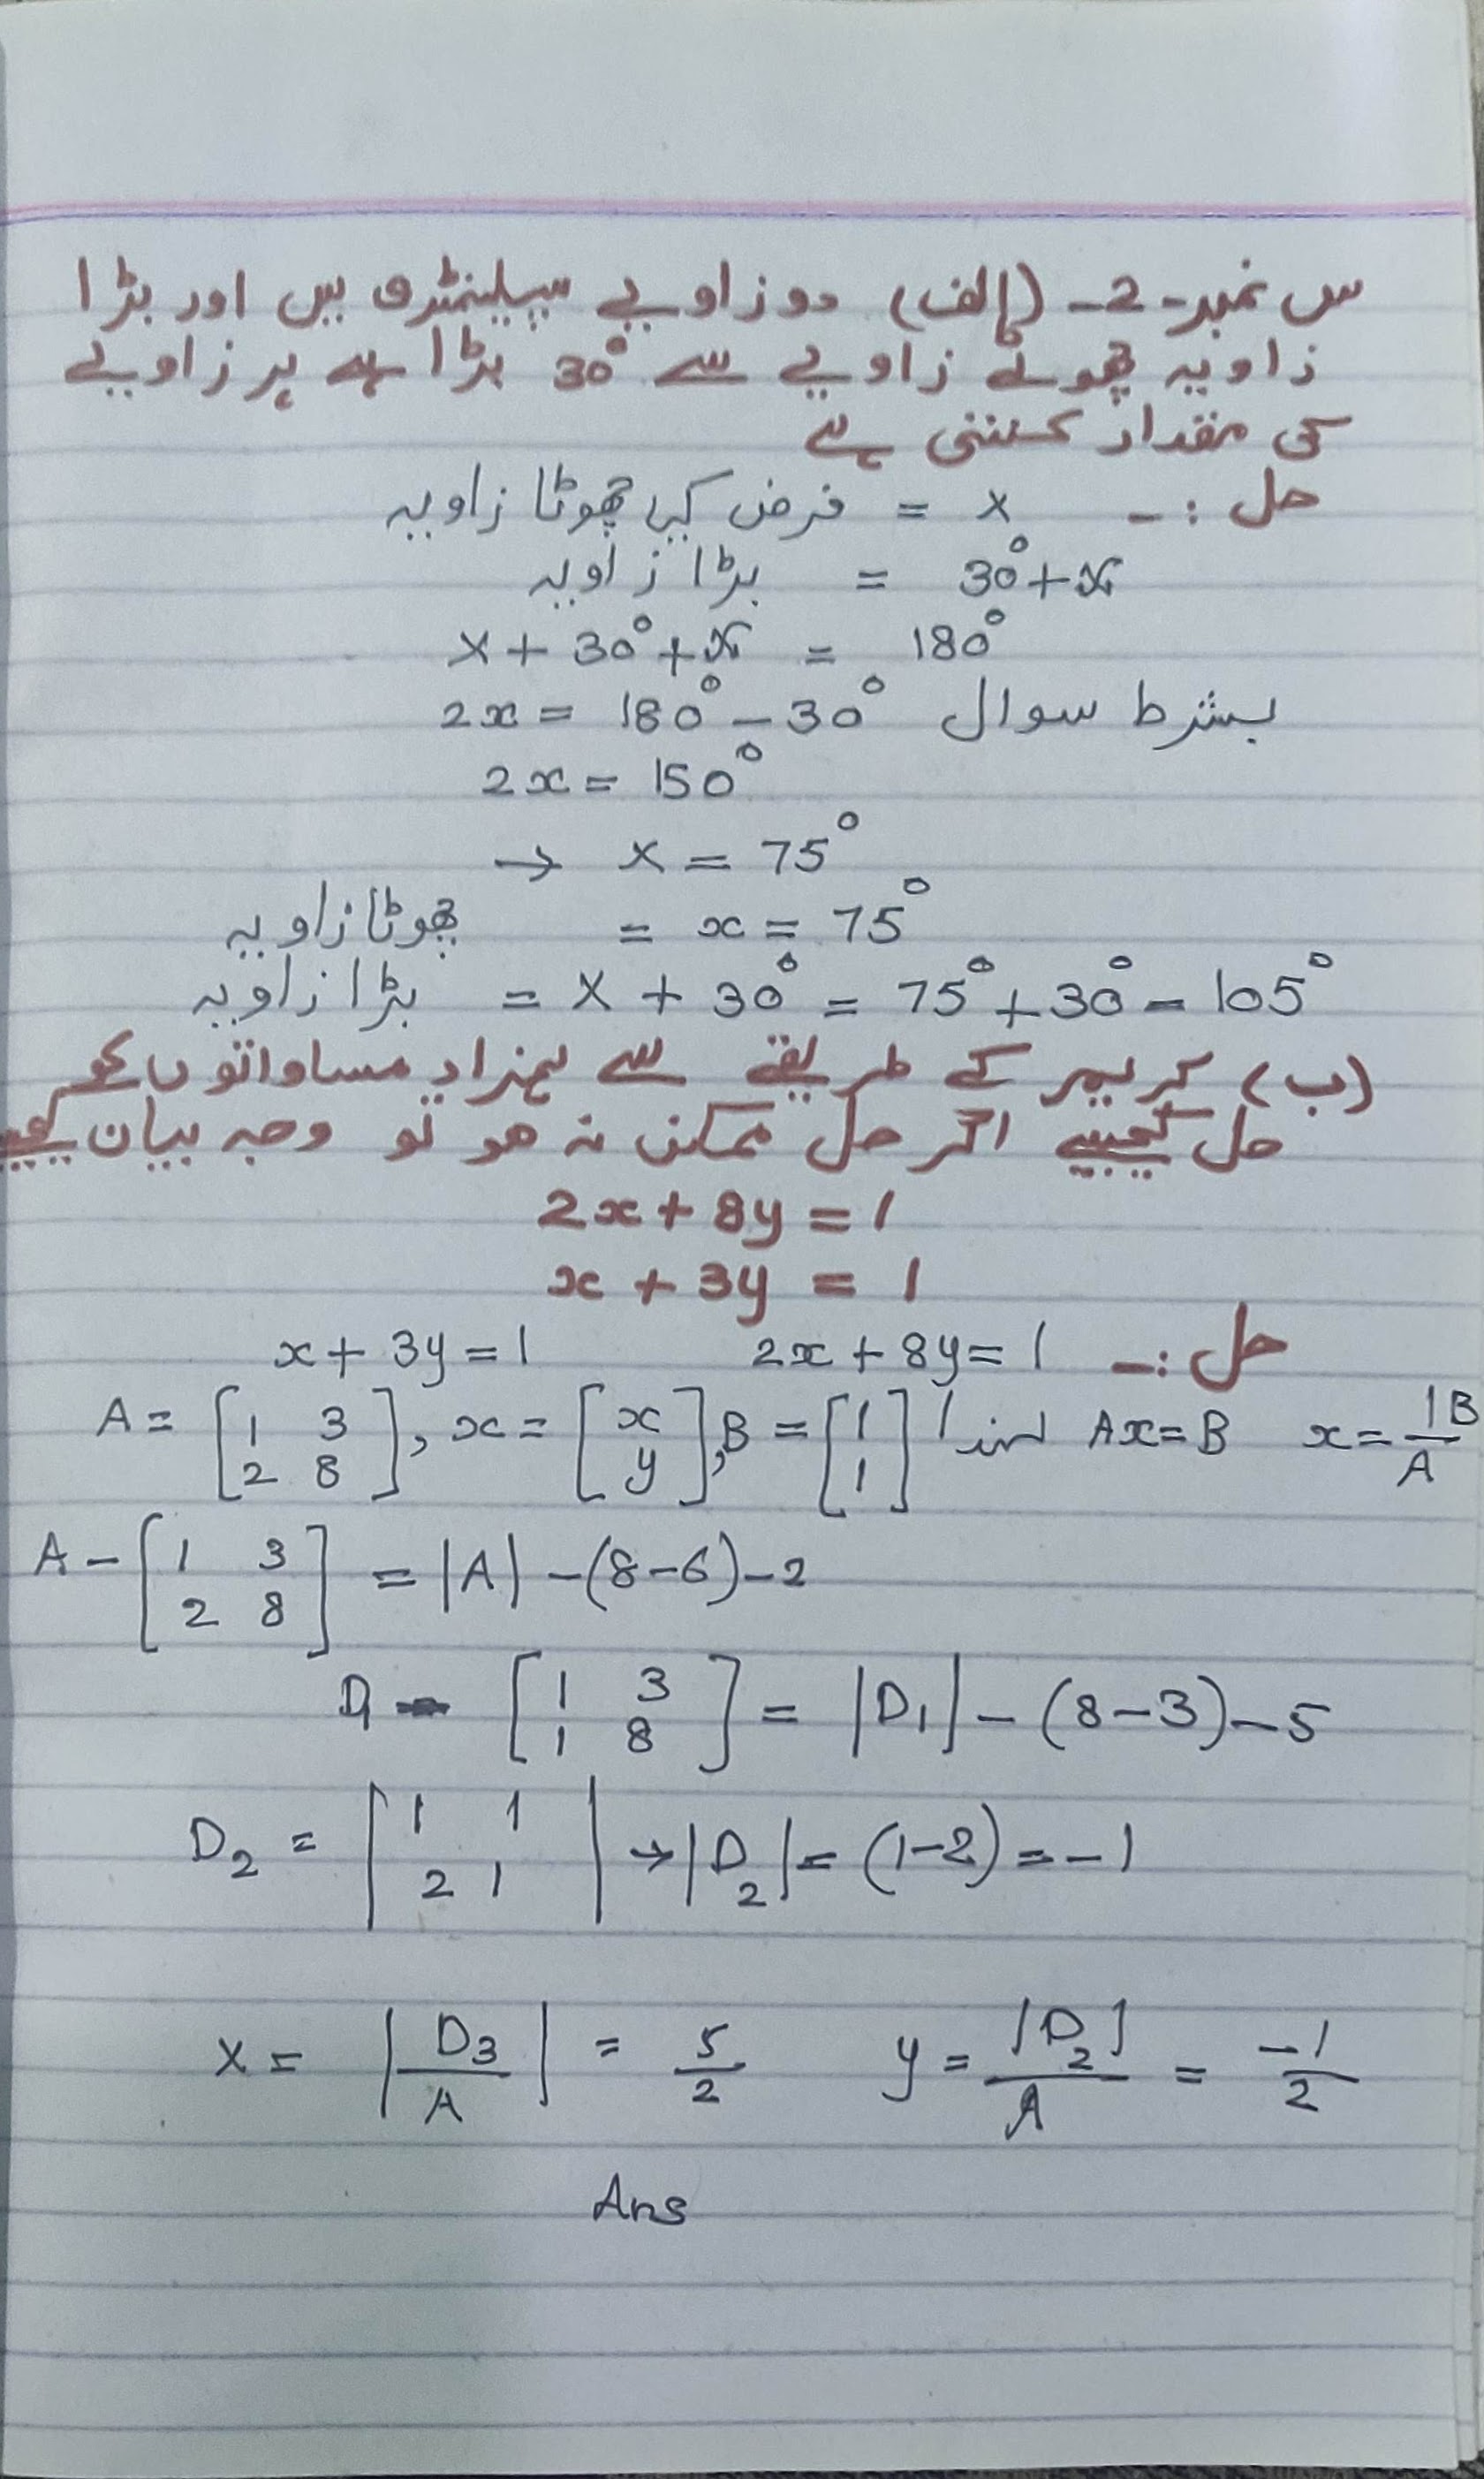 س نمبر-2- (الف) دو زاویے سپلیمنٹری ہیں اور بڑا
زاویہ چھوٹے زاویے سے 30° بڑا ہے ہر زاویے
کی مقدار کتنی ہے
حل :- x = فرض کیا چھوٹا زاویہ
بڑا زاویہ = 30°+x
x + 30°+x = 180°
2x = 180° - 30° بشرط سوال
2x = 150°
→ x = 75°
چھوٹا زاویہ = x = 75°
بڑا زاویہ = x + 30° = 75° + 30° = 105°
(ب) کریمر کے طریقے سے ہمزاد مساواتوں کو
حل کیجیے اگر حل ممکن نہ ہو تو وجہ بیان کیجیے
2x + 8y = 1
x + 3y = 1
x + 3y = 1 2x + 8y = 1 حل :-
A = [1 3 2 8], x = [x y], B = [1 1] لہذا Ax = B x = |B/A
A - [1 3 2 8] = |A| - (8-6) - 2
D - [1 3 1 8] = |D₁| - (8-3) - 5
D₂ = |1 1 2 1| → |D₂| = (1-2) = -1
x = |D3/A| = 5/2 y = |D₂|/A = -1/2
Ans